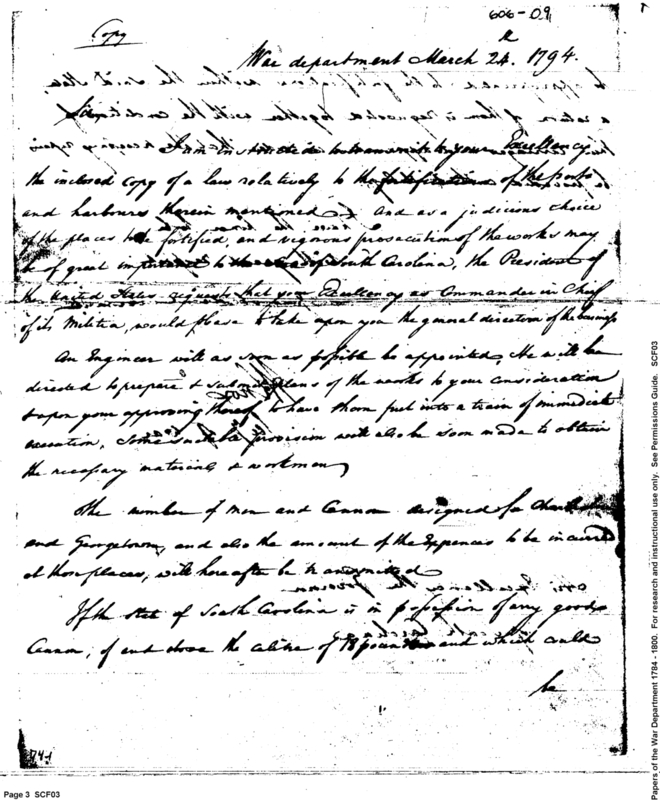 606-09
Copy
War department March 24th. 1794.
Sir
I am instructed to transmit to your Excellency
the inclosed copy of a law relatively to the fortifications of the ports
and harbours therein mentioned And as a judicious choice
of the places to be fortified, and vigorous prosecution of the works may
be of great importance to the state of South Carolina, the President of
the United States requests that your Excellency as Commander in Chief
of its Militia, would please to take upon you the general direction of the business
An Engineer will as soon as possible be appointed, He will be
directed to prepare & submit plans of the works to your consideration
& upon your approving thereof to have them put into a train of immediate
execution, Some suitable provision will also be soon made to obtain
the necessary materials & workmen
The number of men and Cannon designed for
and Georgetown, and also the amount of the Expences to be incurred
at those places, will hereafter be transmitted
If the state of South Carolina is in possession of any good
Cannon, of and above the calibre of 18 pounders and which could
be
Page 3 SCF03
Papers of the War Department 1784 - 1800. For research and instructional use only. See Permissions Guide. SCF03